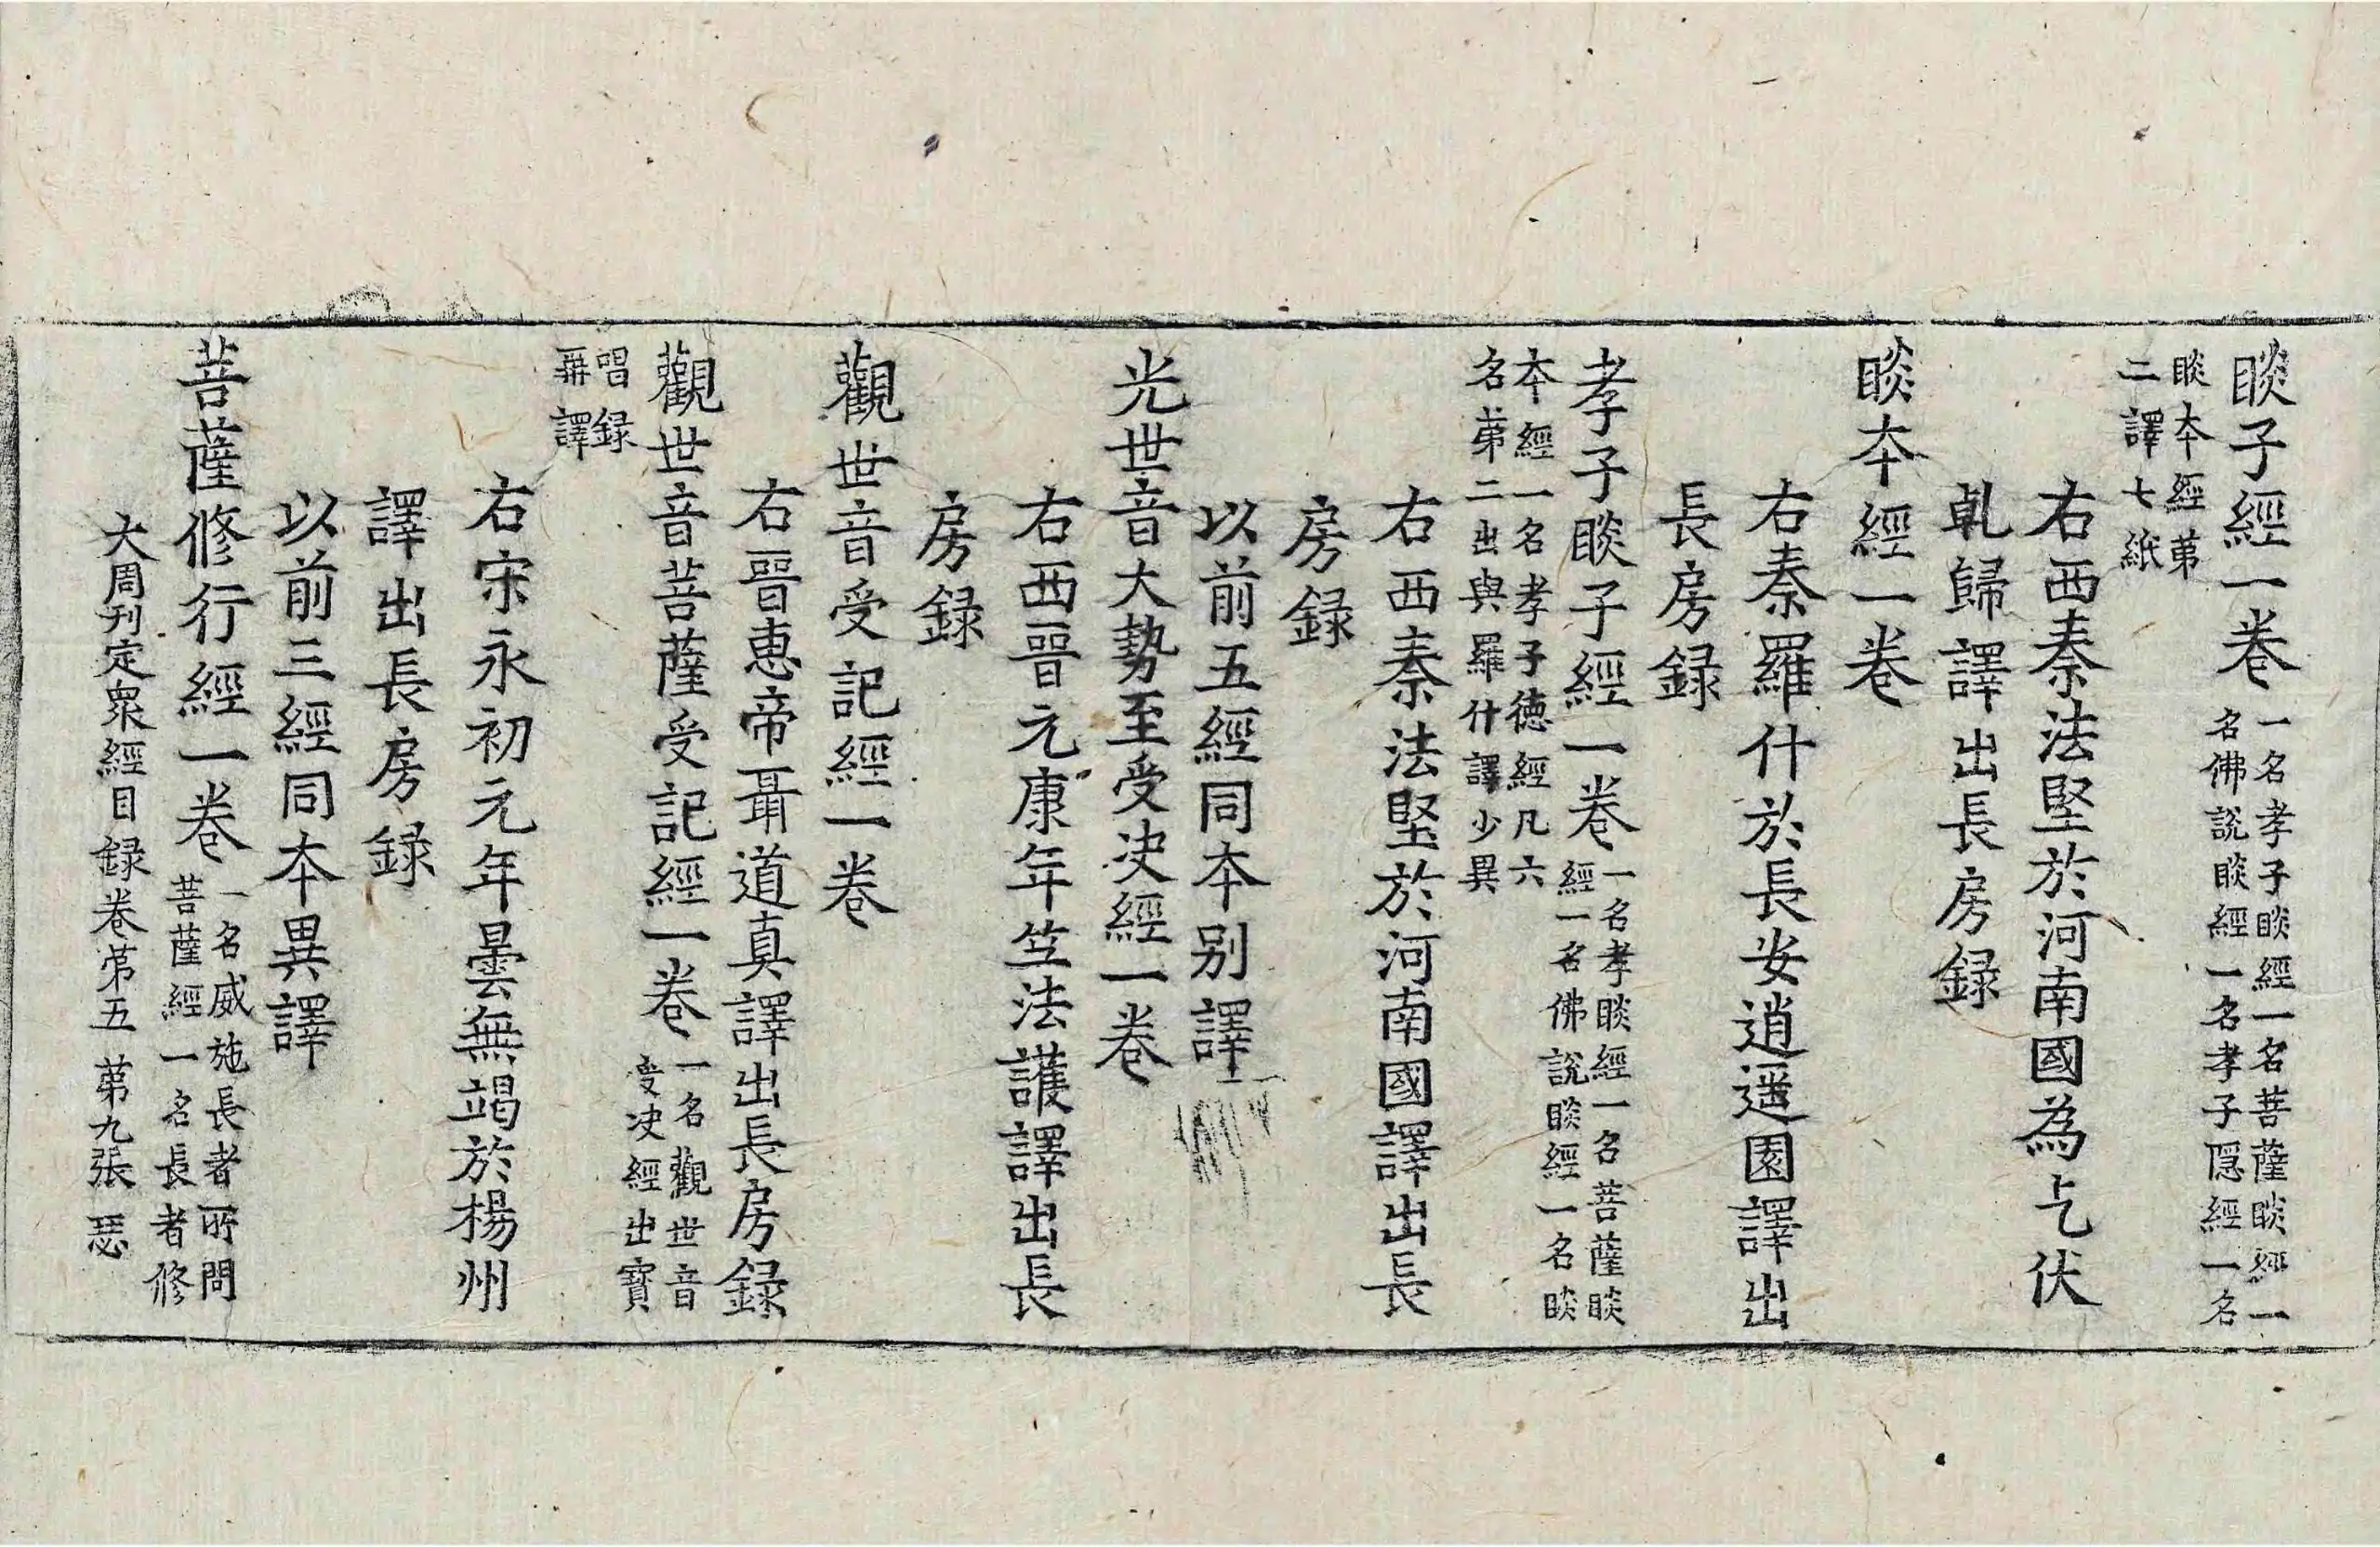 睒子經一卷一名孝子睒經一名菩薩睒經一
名佛說睒經一名孝子隱經一名
睒本經苐
二譯七紙
右西秦法堅於河南國為乞伏
乹歸譯出長房録
睒本經一卷
右秦羅什於長安逍遥園譯出
長房録
孝子睒子經一卷一名孝睒經一名菩薩睒
經一名佛說睒經一名睒
本經一名孝子徳經凡六
名苐二出與羅什譯少異
右西秦法堅於河南國譯出長
房録
以前五經同本别譯
光世音大勢至受决經一卷
右西晉元康年竺法護譯出長
房録
觀世音受記經一卷
右晉惠帝聶道真譯出長房録
觀世音菩薩受記經一卷一名觀世音
受决經出寶
唱録
再譯
右宋永初元年曇無竭於楊州
譯出長房録
以前三經同本異譯
菩薩修行經一卷一名威施長者所問
菩薩經一名長者修
大周刊定衆經目録卷苐五 苐九張 瑟